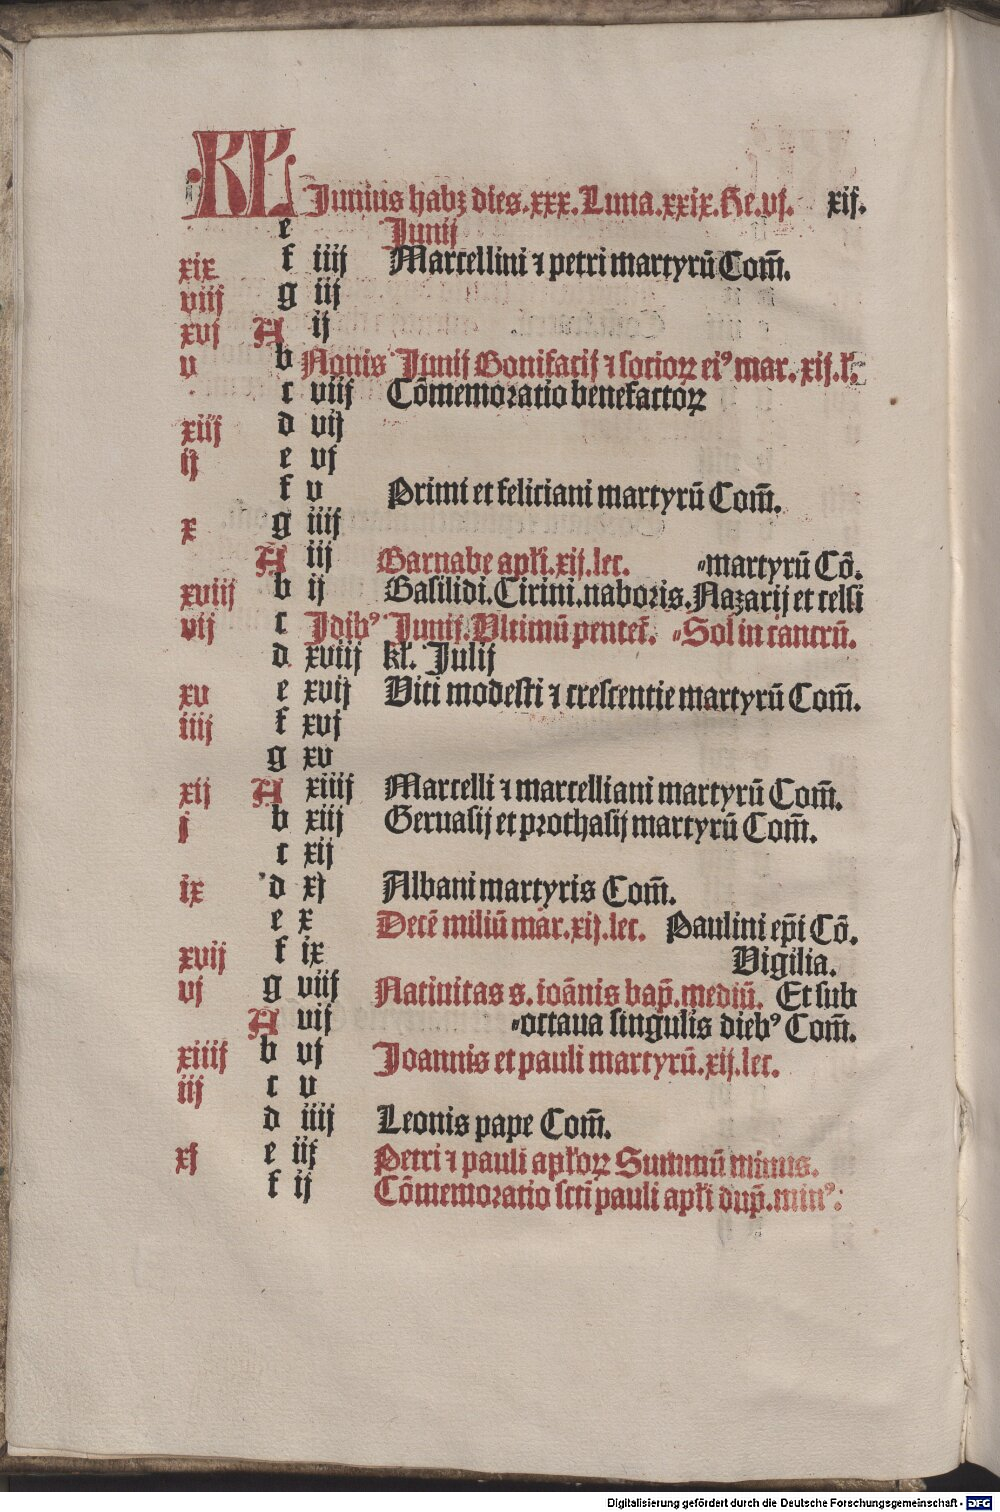 KL Junius habꝫ dies.xxx.Luna.xxix.He.vj. xij.
e Junij
xix f iiij Marcellini ⁊ petri martyrū Com̄.
viij g iij
xvj A ij
v b Nonis Junij Bonifacij ⁊ socioꝝ eiꝰ mar. xij.l'.
c viij Cōmemoratio benefactoꝝ
xiij d vij
ij e vj
f v Primi et feliciani martyrū Com̄.
x g iiij
A iij Barnabe apl'i.xij.lec. martyrū Cō.
xviij b ij Basilidi.Cirini.naboris.Nazarij et celsi
vij c Jdibꝰ Junij.Vltimū pentet̄. Sol in cancrū.
d xviij kl'. Julij
xv e xvij Viti modesti ⁊ crescentie martyrū Com̄.
iiij f xvj
g xv
xij A xiiij Marcelli ⁊ marcelliani martyrū Com̄.
j b xiij Geruasij et prothasij martyrū Com̄.
c xij
ix d xj Albani martyris Com̄.
e x Decē miliū mar.xij.lec. Paulini ep̄i Cō.
xvij f ix Vigilia.
vj g viij Natiuitas s. ioānis bap̄.mediū. Et sub
A vij octaua singulis diebꝰ Com̄.
xiiij b vj Joannis et pauli martyrū.xij.lec.
iij c v
d iiij Leonis pape Com̄.
xj e iij Petri ⁊ pauli apl'oꝝ Summū minus.
f ij Cōmemoratio scti pauli apl'i dup̄.minꝰ:
Digitalisierung gefördert durch die Deutsche Forschungsgemeinschaft - DFG